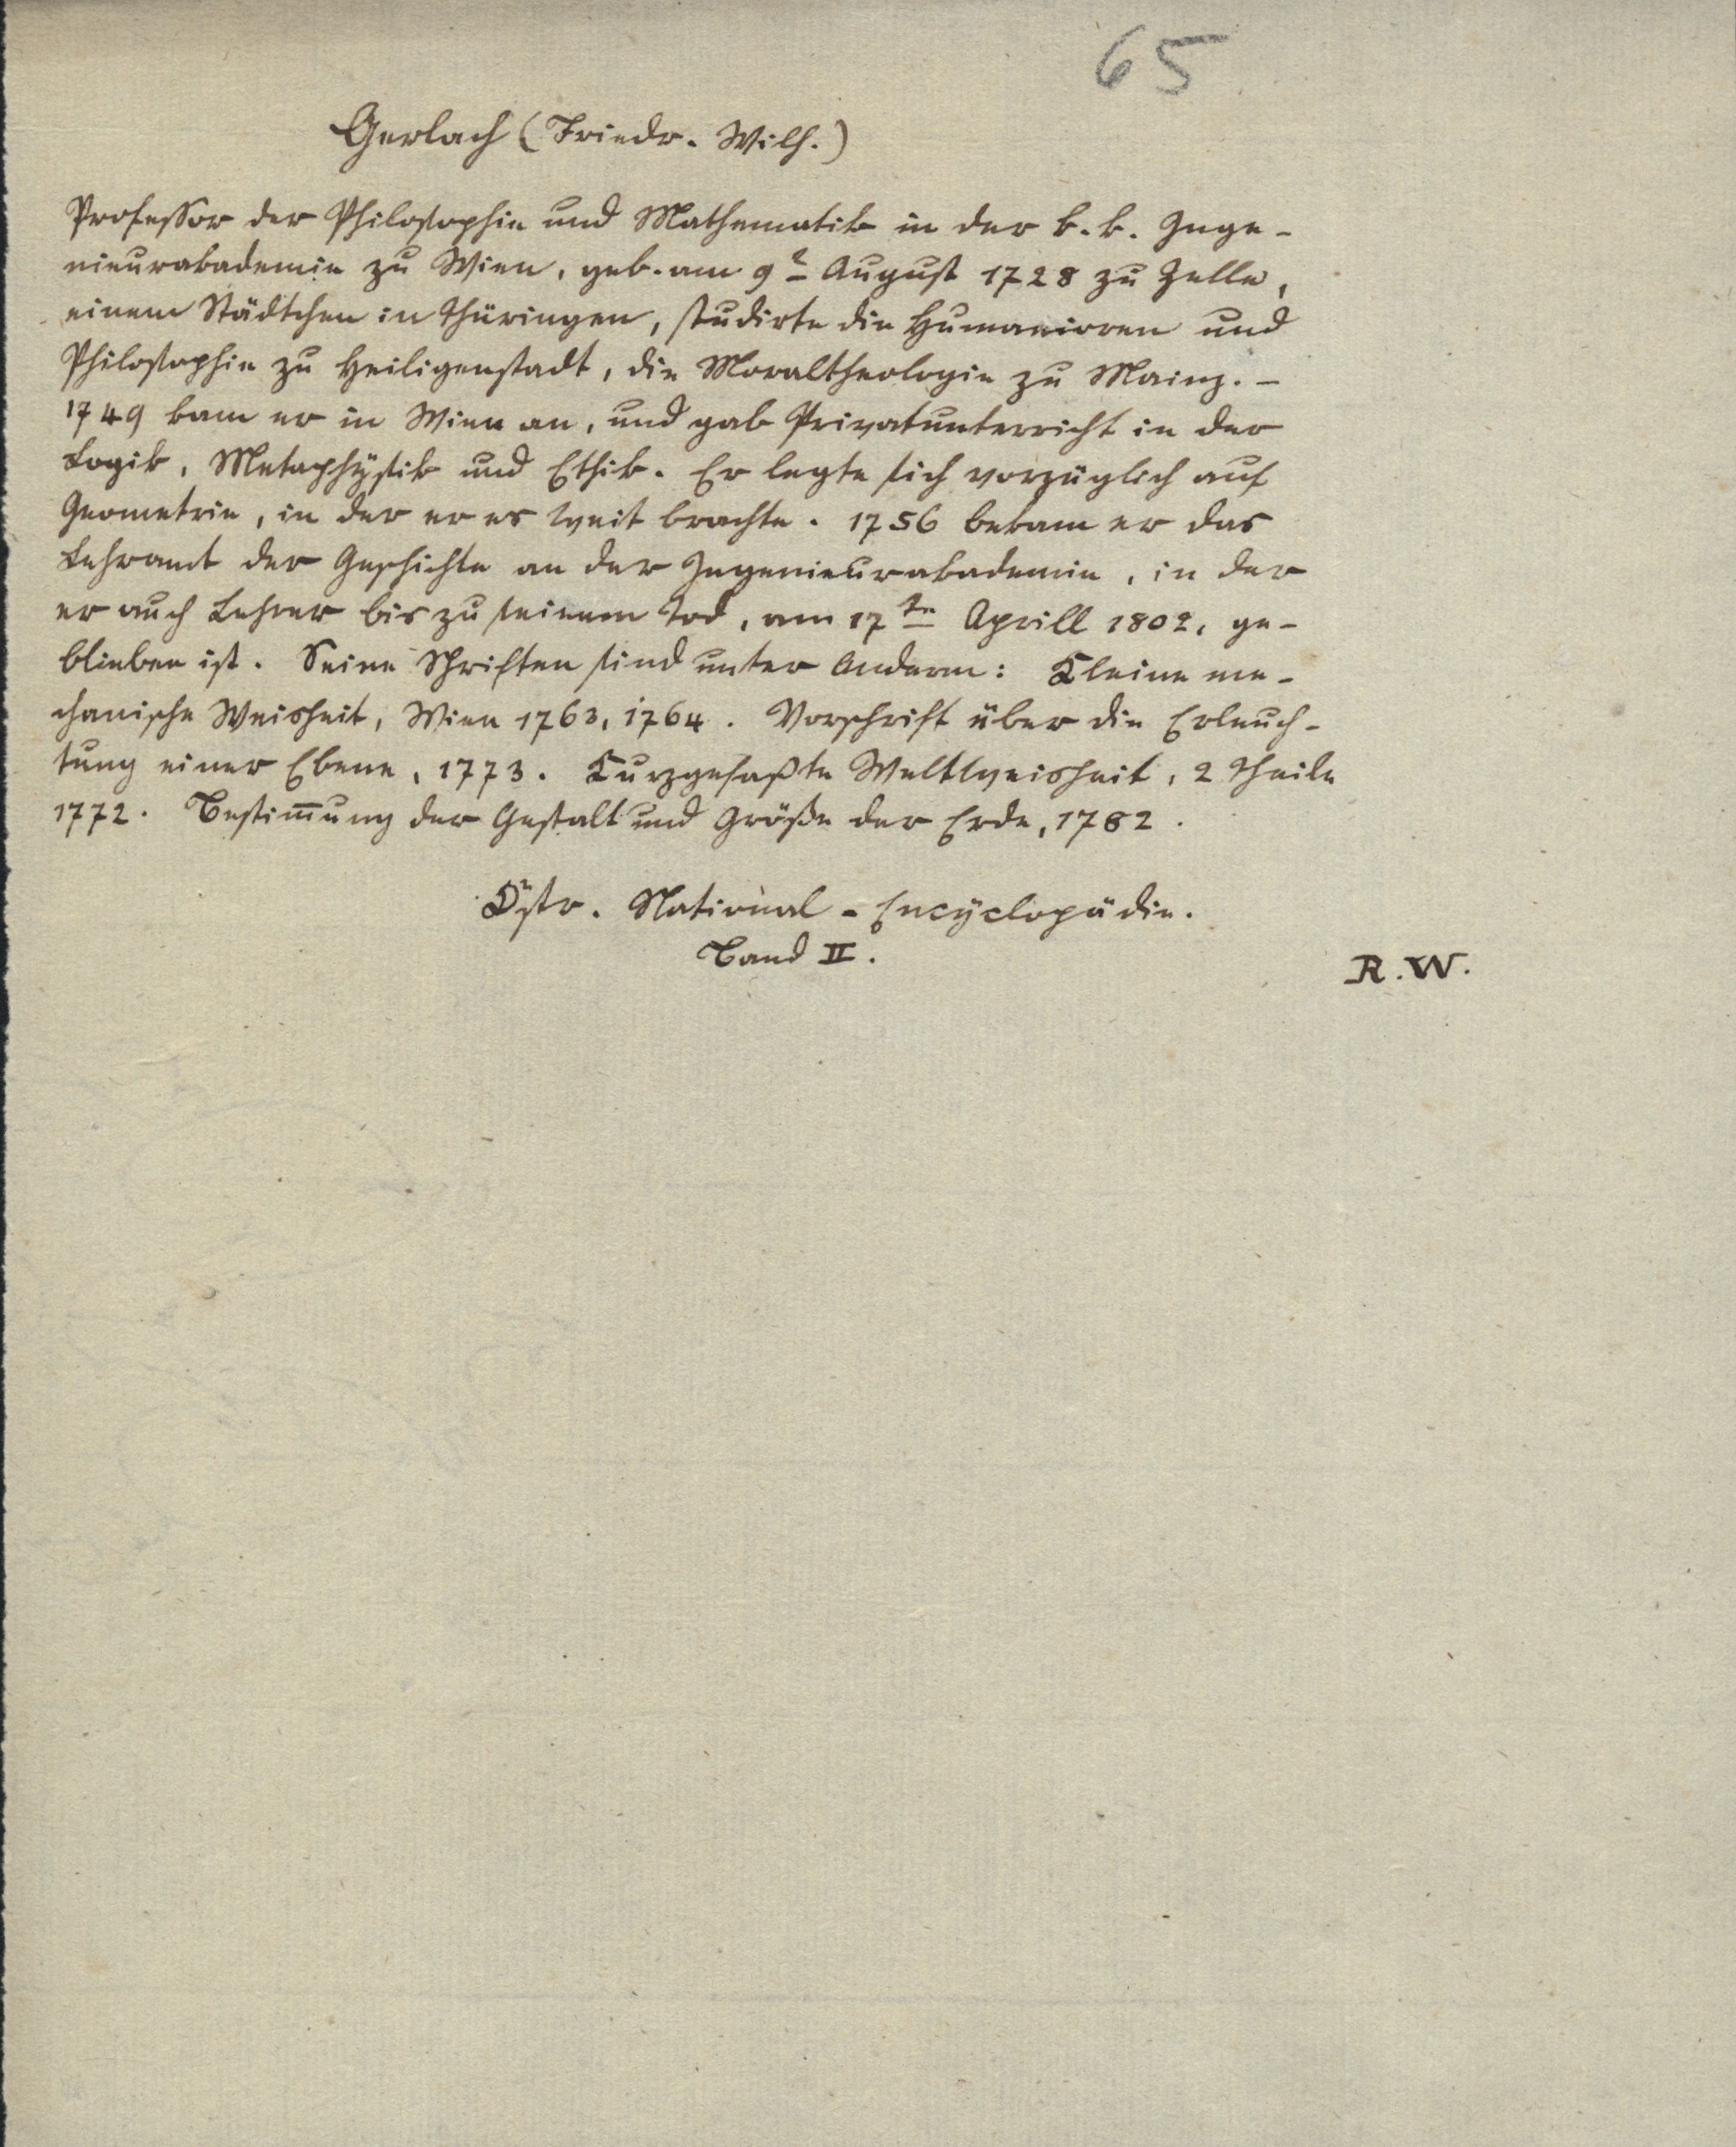 65
Gerlach (Friedr. Wilh.)
Professor der Philosophie und Mathematik in der k. k. Inge-
nieurakademie zu Wien, geb. am 9t August 1728 zu Zelle,
einem Städtchen in Thüringen, studirte die Humanioren und
Philosophie zu Heiligenstadt, die Moraltheologie zu Mainz. –
1749 kam er in Wien an, und gab Privatunterricht in der
Logik, Metaphÿsik und Ethik. Er legte sich vorzüglich auf
Geometrie, in der er es weit brachte. 1756 bekam er das
Lehramt der Geschichte an der Ingenieurakademie, in der
er auch Lehrer bis zu seinem Tod, am 17te Aprill 1802, ge-
blieben ist. Seine Schriften sind unter Anderm: Kleine me-
chanische Weisheit, Wien 1763, 1764. Vorschrift über die Erleuch-
tung einer Ebene, 1773. Kurzgefaßte Weltweisheit, 2 Theile
1772. Bestim̅ung der Gestalt und Größe der Erde, 1782.
Östr. National-Encÿclopädie.
Band II.
R. W.